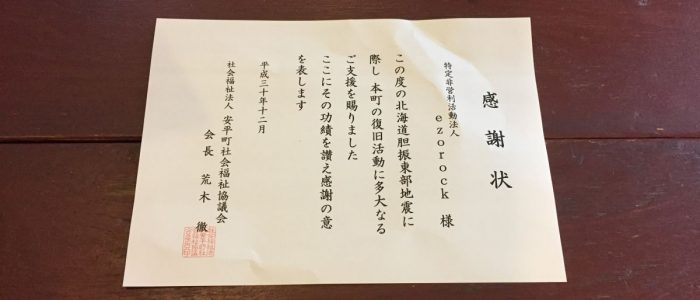 感謝状
特定非営利活動法人
ezorock 様
この度の北海道胆振東部地震に
際し 本町の復旧活動に多大なる
ご支援を賜りました
ここにその功績を讃え感謝の意
を表します
平成三十年十二月
社会福祉法人 安平町社会福祉協議会
会長 荒木 徹